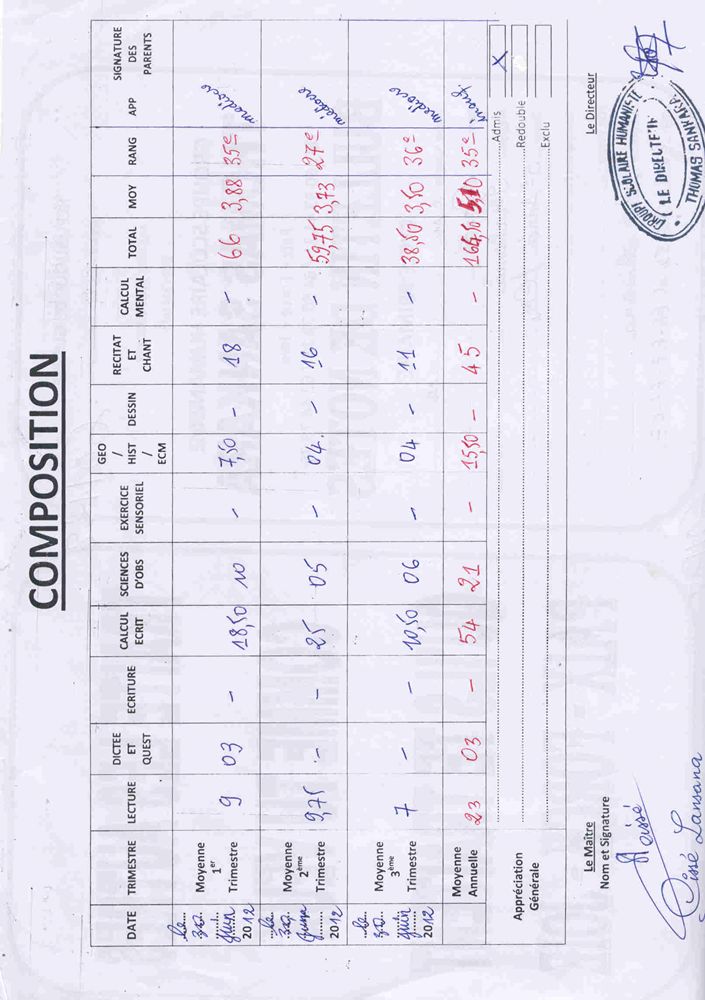 COMPOSITION
DATE TRIMESTRE LECTURE DICTEE ET QUEST ECRITURE CALCUL ECRIT SCIENCES D'OBS EXERCICE SENSORIEL GEO / HIST / ECM DESSIN RECITAT ET CHANT CALCUL MENTAL TOTAL MOY RANG APP SIGNATURE DES PARENTS
le 30 juin 2012 Moyenne 1er Trimestre 9 03 - 18,50 10 - 7,50 - 18 - 66 3,88 35e mediocre
le 30 juin 2012 Moyenne 2ème Trimestre 9,75 - - 25 05 - 04 - 16 - 59,75 3,73 27e mediocre
le 30 juin 2012 Moyenne 3ème Trimestre 7 - - 10,50 06 - 04 - 11 - 38,50 3,50 36e mediocre
Moyenne Annuelle 23 03 - 54 21 - 15,50 - 45 - 5,10 35e
Appréciation Générale
Admis X
Redouble
Exclu
Le Maître
Nom et Signature
Cissé Lansana
Le Directeur
GROUPE SCOLAIRE HUMANISTE
LE DIRECTEUR
THOMAS SANKARA